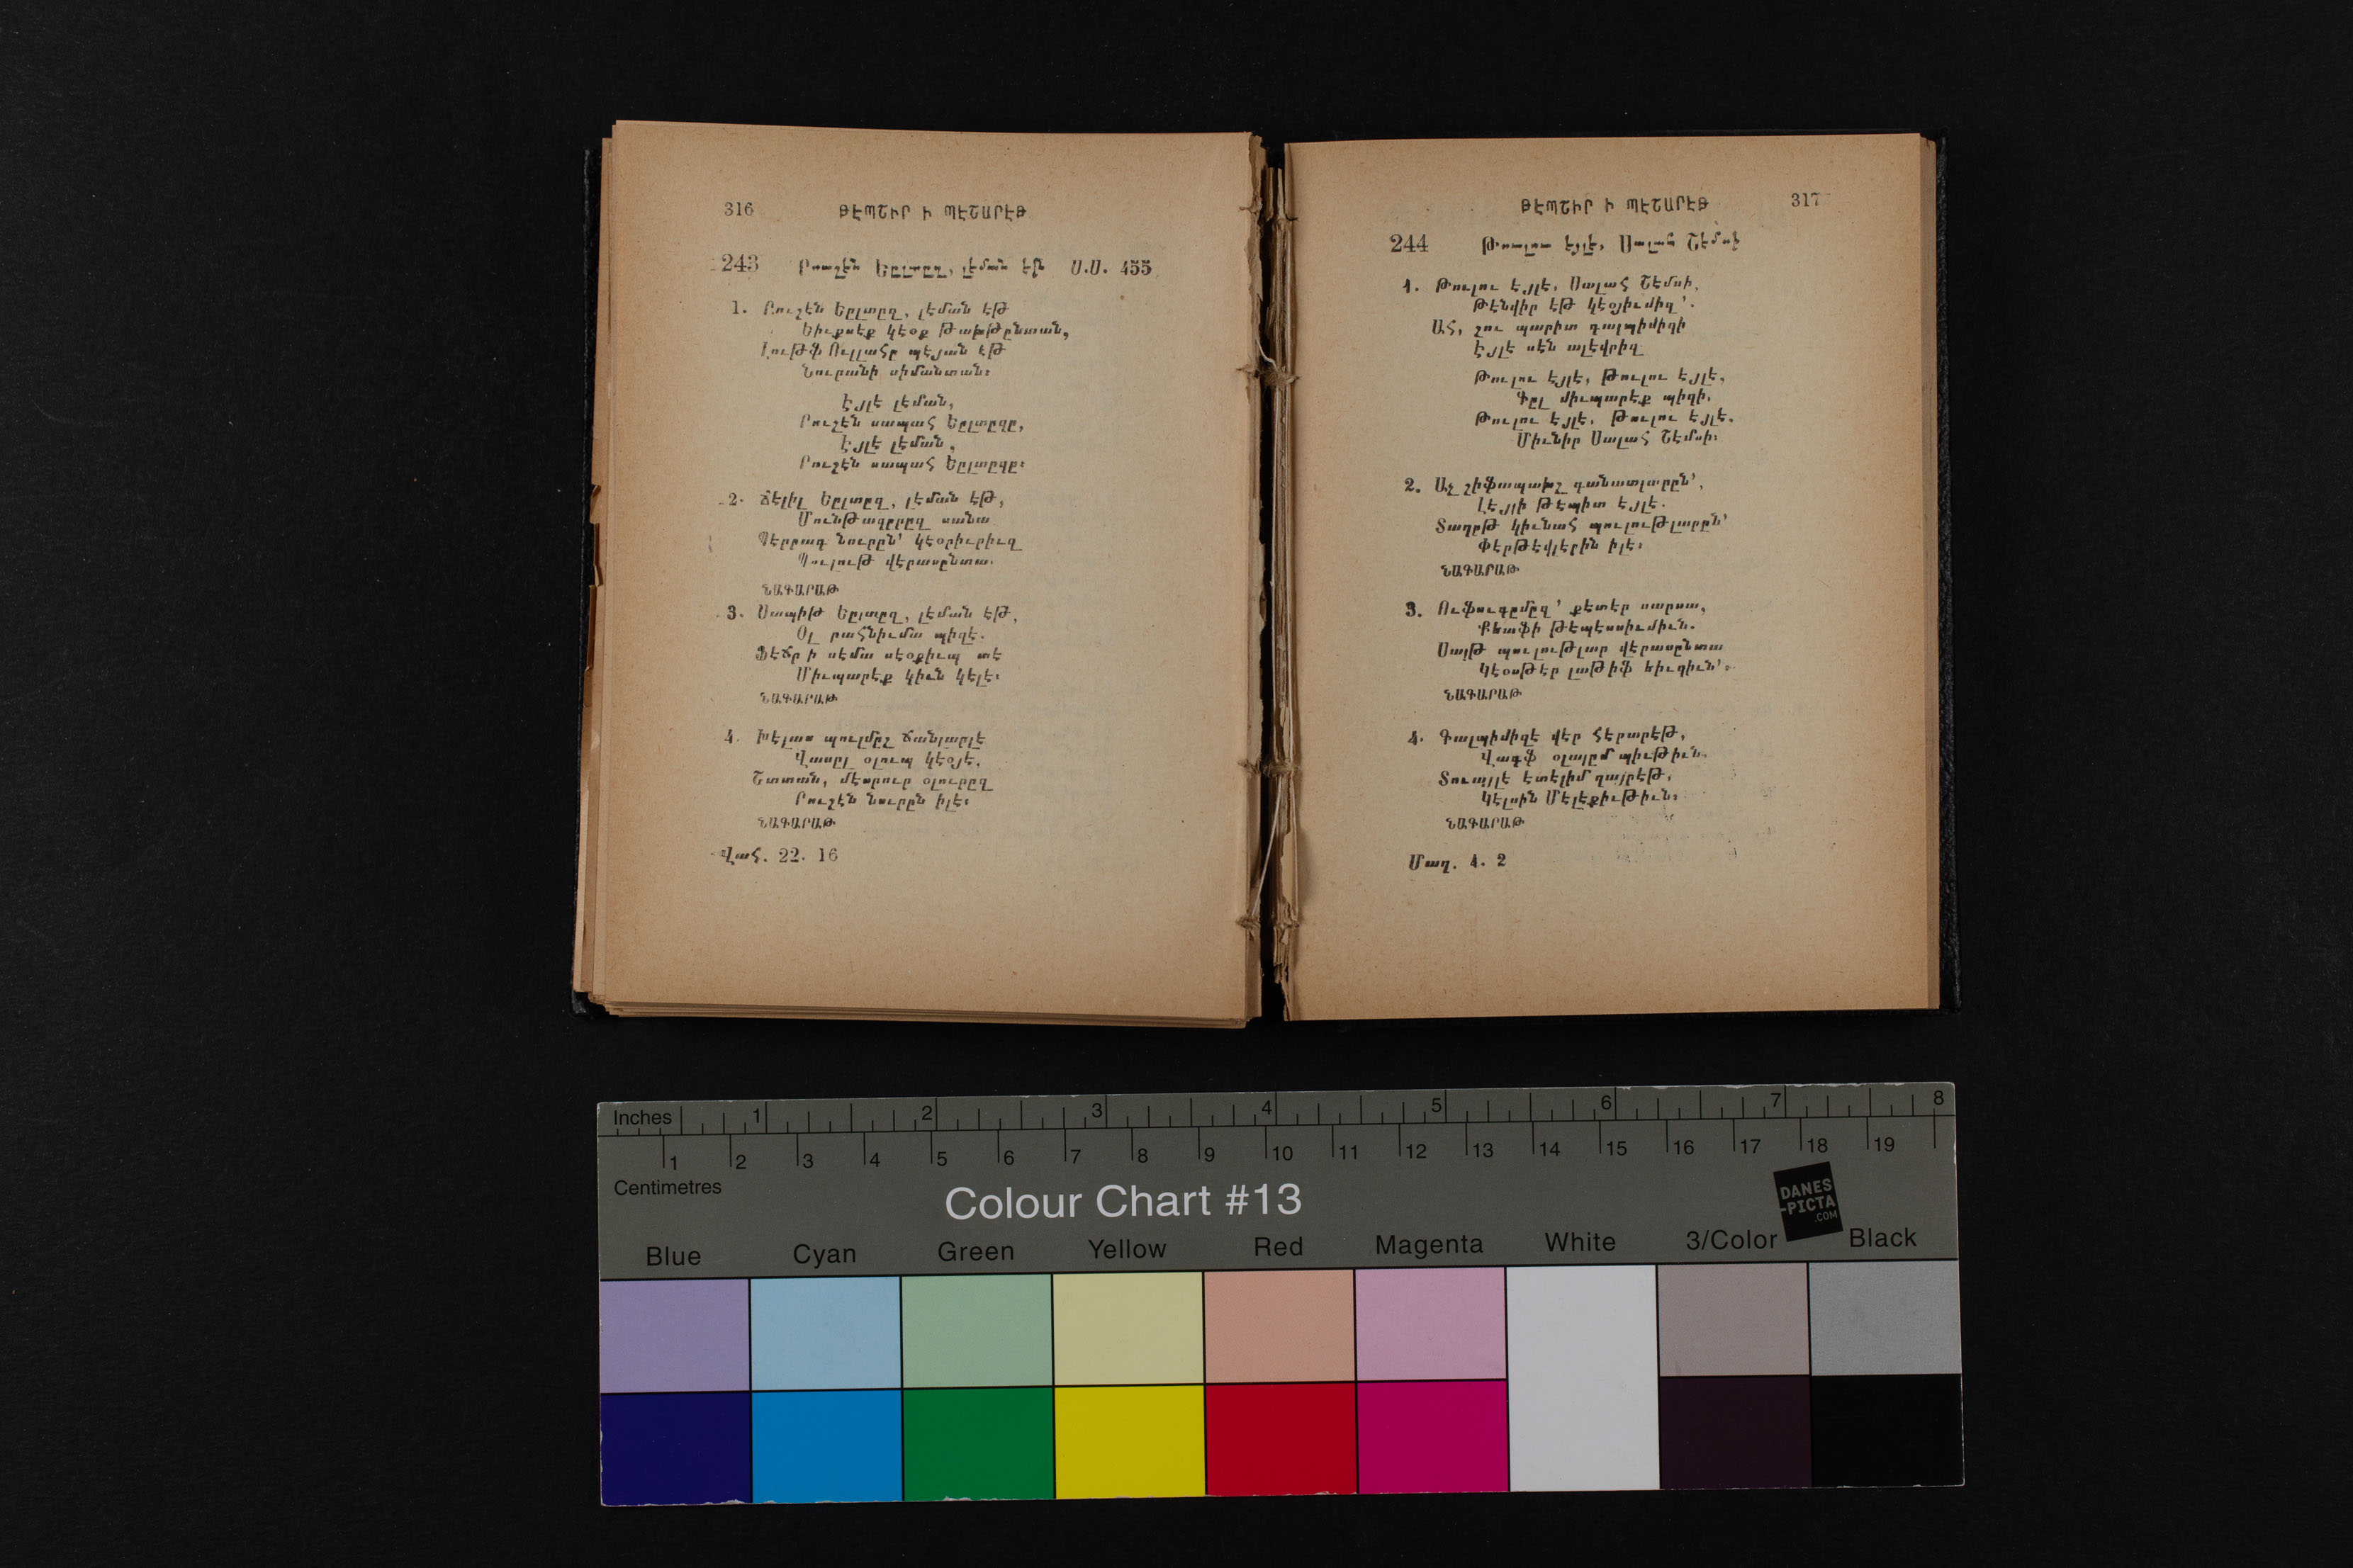 316 ԹԷՊՇԻՐ Ի ՊԷՇԱՐԷԹ
243 Րուշէն Եըլտըզ, լէման էթ Ս.Ս. 455
1. Րուշէն Եըլտըզ, լէման էթ
Եիւքսէք կէօք Թախթընտան,
Լութֆ Ուլլահը պէյան էթ
Նուրանի սիմանտան։
Էյլէ լէման,
Րուշէն սապահ Եըլտըզը,
Էյլէ լէման,
Րուշէն սապահ Եըլտըզը։
2. Ճէլիլ Եըլտըզ, լէման էթ,
Մունթազըրըզ սանա
Պէրրագ նուրըն՝ կէօրիւրիւզ
Պուլութ վէրասընտա.
ՆԱԳԱՐԱԹ
3. Սապիթ Եըլտըզ, լէման էթ,
Օլ րահնիւմա պիզէ.
Ֆէճր ի սէմա սէօքիւպ տէ
Միւպարէք կիւն կելէ։
ՆԱԳԱՐԱԹ
4. Խէլաս պուլմըշ ճանլարլէ
Վասըլ օլուպ կէօյէ,
Շատան, մէսրուր օլուրըզ
Րուշէն նուրըն իլէ։
ՆԱԳԱՐԱԹ
Վահ. 22. 16
ԹԷՊՇԻՐ Ի ՊԷՇԱՐԷԹ 317
244 Թուլու էյլէ, Սալահ Շէմսի
1. Թուլու էյլէ, Սալահ Շէմսի,
Թէնվիր էթ կէօյիւմիզ՝.
Ահ, շու պարիտ գալպիմիզի
Էյլէ սէն ալէվրիզ
Թուլու էյլէ, Թուլու էյլէ,
Գըլ միւպարէք պիզի,
Թուլու էյլէ, Թուլու էյլէ,
Միւնիր Սալահ Շէմսի։
2. Աչ շիֆապախշ գանատլարըն՝,
Լէյլի թէպիտ էյլէ.
Տաղըթ կիւնահ պուլութլարըն՝
Փէրթէվլերին իլէ։
ՆԱԳԱՐԱԹ
3. Ուֆուգըմըզ՝ քետէր սարսա,
Քեաֆի թէպէսսիւմիւն.
Սայթ պուլութլար վէրասընտա
Կէօսթէր լաթիֆ եիւզիւն՝։
ՆԱԳԱՐԱԹ
4. Գալպիմիզէ վէր հէրարէթ,
Վագֆ օլալըմ պիւթիւն.
Տուայլէ էտէլիմ ղայրէթ,
Կէլսին Մէլէքիւթիւն։
ՆԱԳԱՐԱԹ
Մաղ. 4. 2
Inches 1 2 3 4 5 6 7 8
1 2 3 4 5 6 7 8 9 10 11 12 13 14 15 16 17 18 19
Centimetres
Colour Chart #13
DANES
-PICTA
.COM
Blue Cyan Green Yellow Red Magenta White 3/Color Black